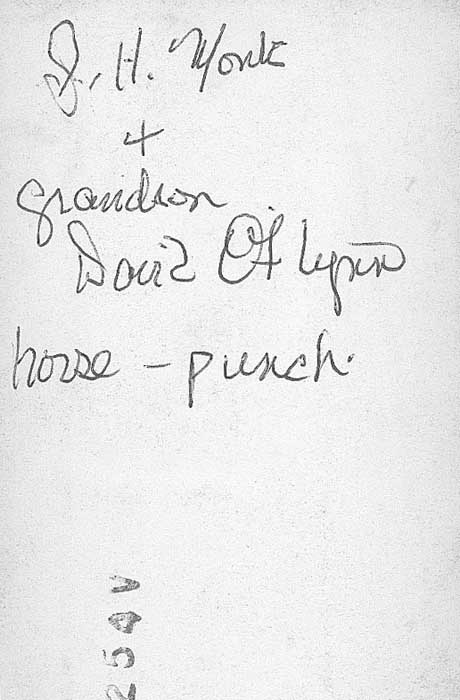 J. H. Monk
+
grandson
David O'Flynn
horse - punch.
254V